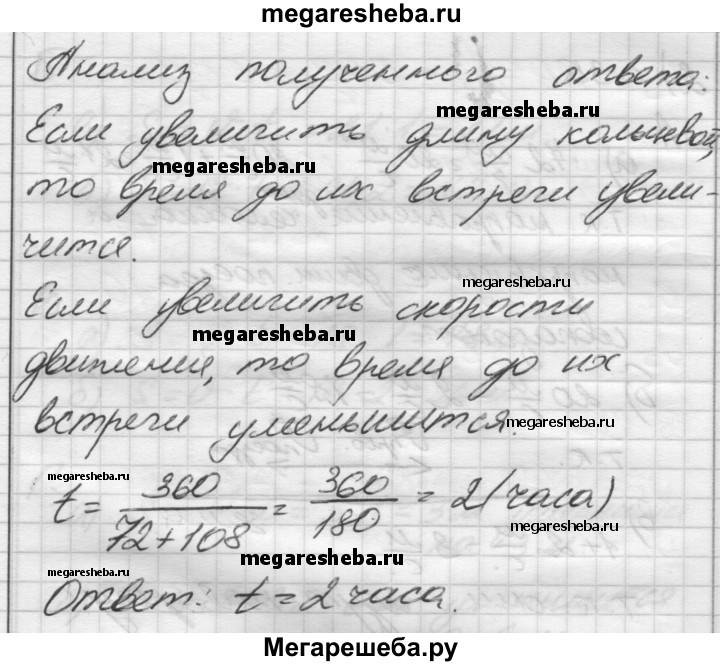 megaresheba.ru
Анализ полученного ответа:
megaresheba.ru
Если увеличить длину кольцевой,
megaresheba.ru
то время до их встречи увели-
чится.
megaresheba.ru
Если увеличить скорости
megaresheba.ru
движения, то время до их
встречи уменьшится.
megaresheba.ru
megaresheba.ru
t = 360/(72+108) = 360/180 = 2 (часа)
megaresheba.ru
megaresheba.ru
megaresheba.ru
Ответ: t = 2 часа.
Мегарешеба.ру